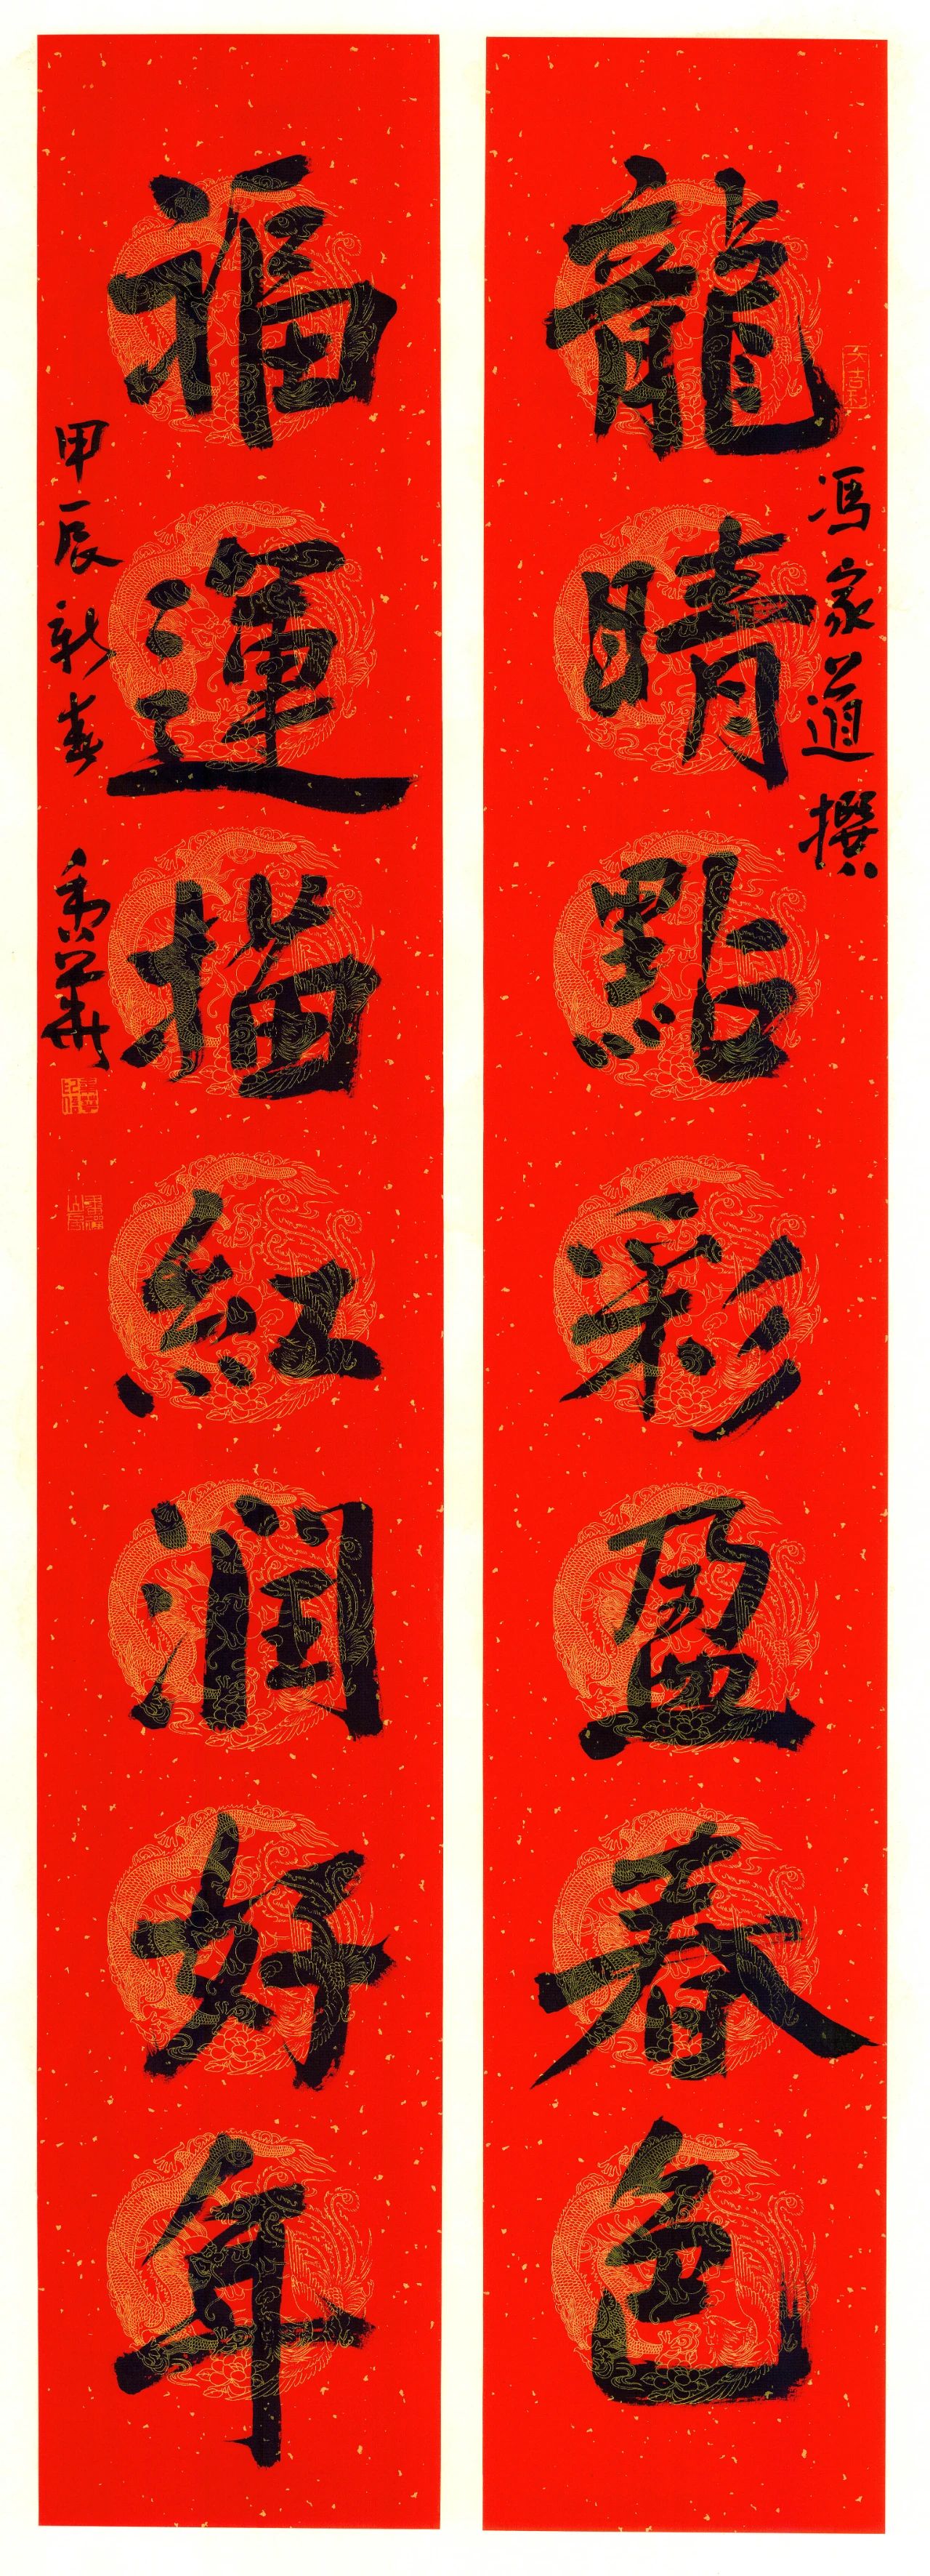 龍睛點彩盈春色
馮家道撰
福運描紅潤好年
甲辰新春 秉華